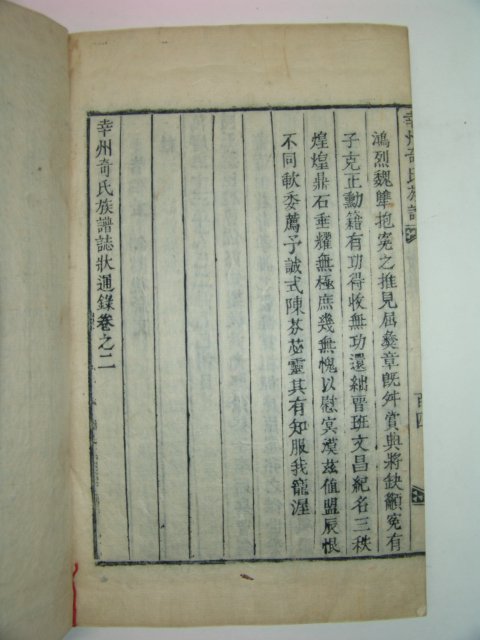 幸州奇氏族譜
鴻烈魏犨抱冤之推見屈彜章旣舛賞典將缺顧冤有
子克正勳籍有功得收無功還絀晋班文昌紀名三秩
煌煌鼎石垂耀無極庶幾無愧以慰冥漠兹值盟辰恨
不同歃委薦予誠式陳芬苾靈其有知服我寵渥
幸州奇氏族譜誌狀通錄卷之二